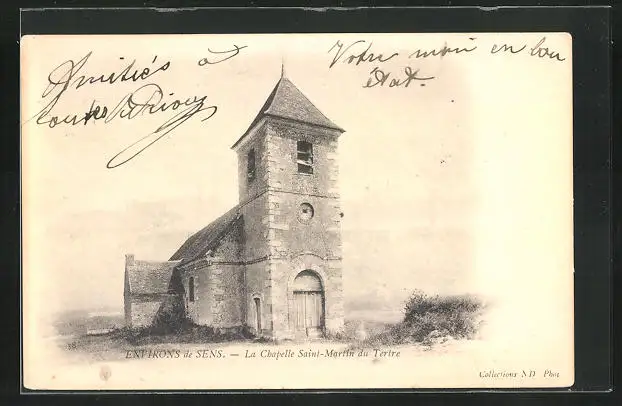 Amitiés à
toutes
Votre moin en bon
état.
ENVIRONS de SENS. — La Chapelle Saint-Martin du Tertre
Collections ND Phot